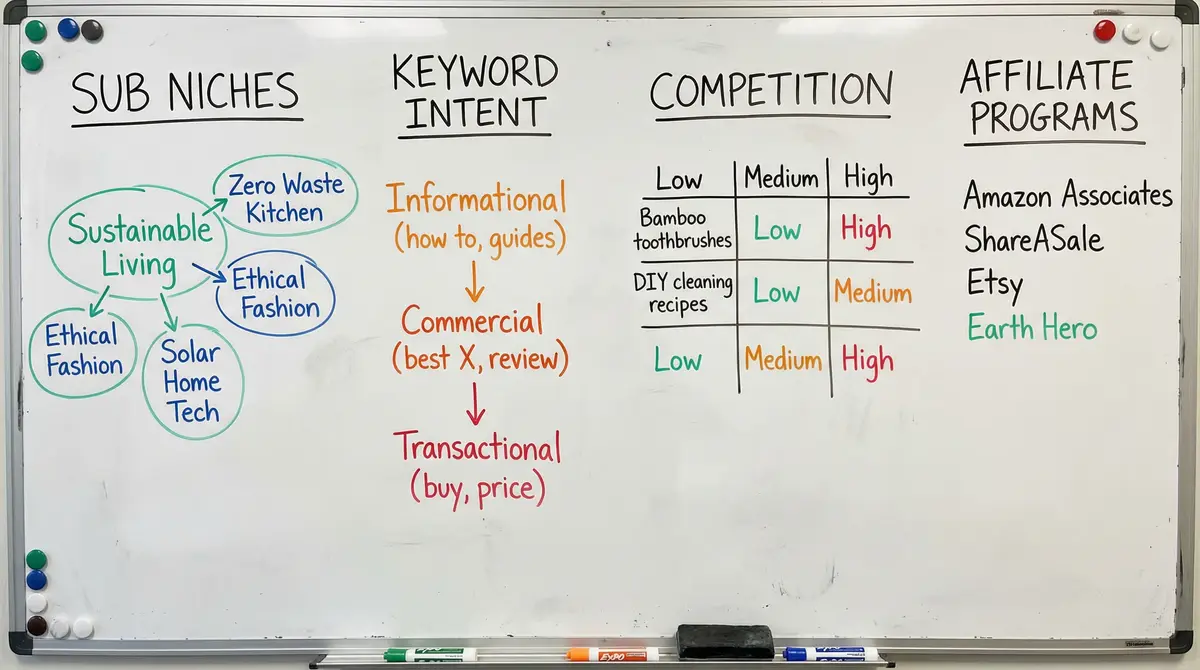 SUB NICHES
Sustainable
Living
Zero Waste
Kitchen
Ethical
Fashion
Ethical
Fashion
Solar
Home
Tech
KEYWORD
INTENT
Informational
(how to, guides)
Commercial
(best X, review)
Transactional
(buy, price)
COMPETITION
Low Medium High
Bamboo
toothbrushes
Low High
DIY cleaning
recipes
Low Medium
Low Medium High
AFFILIATE
PROGRAMS
Amazon Associates
ShareASale
Etsy
Earth Hero
EXPO